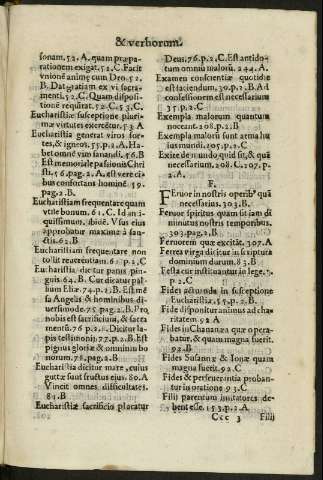 & verborum.
sonam. 52. A. quam præpa-
rationem exigat. 52. C. Facit
vnionē animę cum Deo. 52.
B. Dat gratiam ex vi sacra-
menti. 52. C. Quam dispositi-
tionē requirat. 52. C. 53. C.
Eucharistiæ susceptione pluri-
mæ virtutes exercētur. 53. A
Eucharistia generat viros for-
tes, & igneos. 55. p. 2. A. Ha-
bet omnē vim sanandi. 56. B
Est memoriale passionis Chri
sti. 56. pag. 2. A. est vere ci-
bus confortans hominē 59.
pag. 2. B.
Eucharistiam frequentare quam
vtile bonum. 61. C. Id an i-
quissimum. ibidē. Vsus eius
approbatur maxime à san-
ctis. 62. B
Eucharistiam frequentare non
tollit reuerentiam. 62. p. 2. C
Eucharistia dicitur panis pin-
guis. 64. B. Cur dicatur pal-
lium Eliæ. 74. p. 2. B. Est mē
sa Angelis & hominibus di-
uersimode. 75. pag. 2. B. Pro
nobis est sacrificium, & sacra
mentū. 76. p. 2. Dicitur la-
pis testimonij. 77. p. 2. B. Est
pignus gloriæ & omnium bo
norum. 78. pag. 2. B.
Eucharistia dicitur mare, cuius
guttæ sunt fructus ejus. 80. A
Vincit omnes difficultates.
81. B
Eucharistiæ sacrificio placatur
Deus. 76. p. 2. C. Est antido-
tum omniū malorū. 244. A.
Examen conscientiæ quotidie
est faciendum. 30. p. 2. B. Ad
confessionem est necessarium
35. p. 2. C
Exempla malorum quantum
noceant. 208. p. 2. B
Exempla malorū sunt arma hu
ius mundi. 205. p. 2. C
Exite de mundo quid sit, & quā
necessarium. 208. C. 207. p.
2. A.
F.
Feruor in nostris operib⁹ quā
necessarius. 303. B.
Feruor spiritus quam sit iam di
minutus nostris temporibus.
303. pag. 2. B
Feruorem quæ excitāt. 307. A
Ferrea virga dicitur in scriptura
dominium durum. 83. B.
Festa cur instituantur in lege. 7.
p. 2. C
Fidei actus nde in susceptione
Eucharistiæ. 55. p. 2. B
Fide disponitur animus ad cha-
ritatem. 92. A
Fides in Chananæa quæ opera-
batur, & quam magna fuerit.
92. B
Fides Susannę & Ionæ quam
magna fuerit. 92. C
Fides & perseuerantia proban-
tur in oratione 93. C
Filij parentum imitatores de-
bent esse. 153. p. 2. A
Ccc 3 Filij